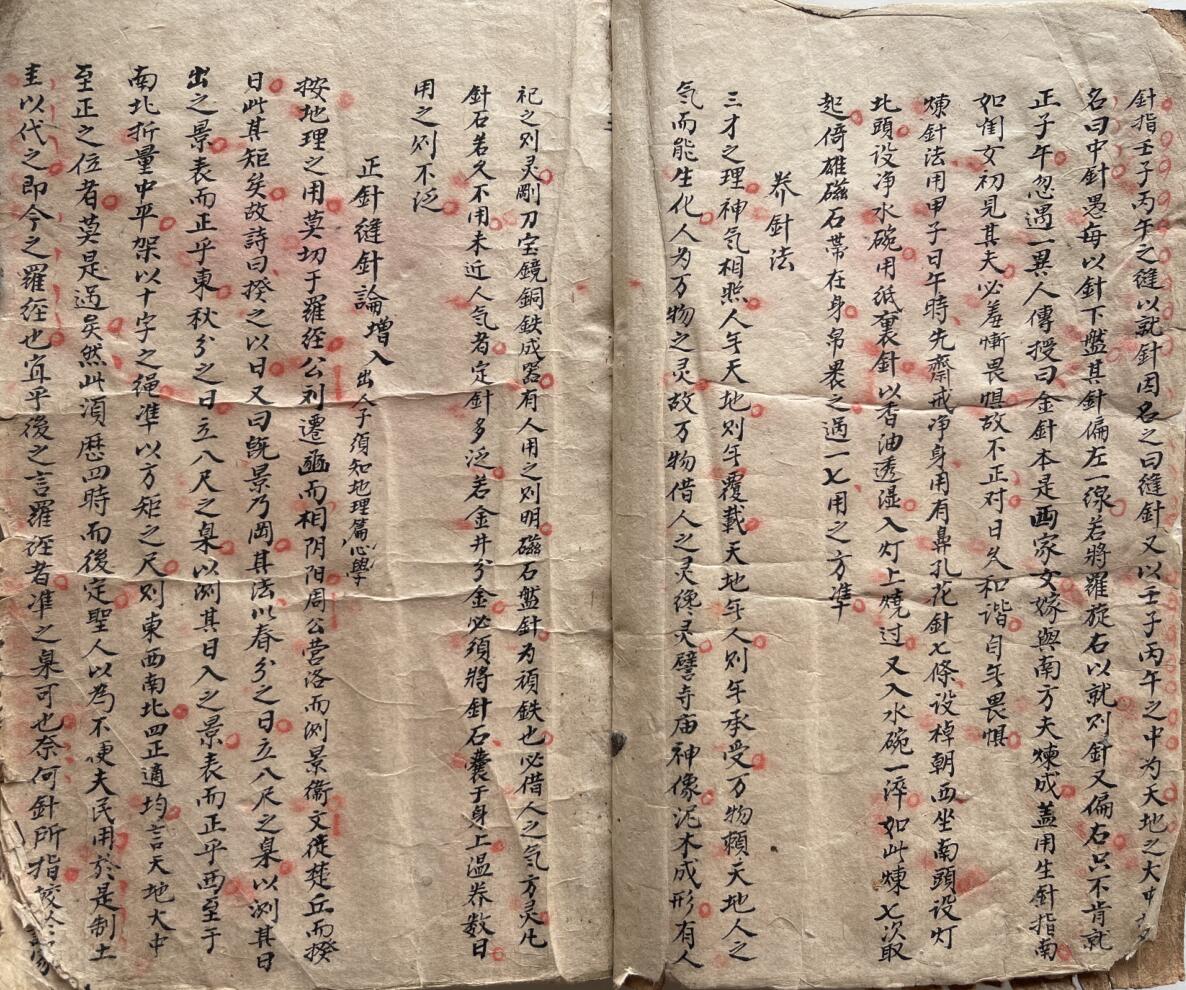 針指壬子丙午之縫以就針因名之曰縫針又以壬子丙午之中为天地之大中
名曰中針愚每以針下盤其針偏左一線若將羅旋右以就则針又偏右只不肯就
正子午忽遇一異人傳授曰金針本是西家女嫁與南方夫煉成蓋用生針指南
如闺女初見其夫必羞慚畏惧故不正对日久和谐自无畏惧
煉針法用甲子日午時先齋戒净身用有鼻孔花針七條设棹朝西坐南頭设灯
北頭设净水碗用纸裹針以香油透湿入灯上燒过又入水碗一淬如此煉七次取
起倚雄磁石带在身帛裹之过一七用之方準
养針法
三才之理神气相照人无天地则无覆載天地无人则无承受万物頼天地人之
氣而能生化人为万物之灵故万物借人之灵終灵譬寺庙神像泥木成形有人
祀之则灵剛刀宝鏡銅鉄成器有人用之则明磁石盤針为頑鉄也必借人之气方灵凡
針石若久不用未近人气者定針多泛若金井分金必须將針石囊于身上温养数日
用之则不泛
正針縫針論增入 出人子须知地理篇心學
按地理之用莫切于羅经公刘遷豳而相阴阳周公营洛而测景衞文徙楚丘而揆
日此其矩矣故詩曰揆之以日又曰既景乃岡其法以春分之日立八尺之臬以测其日
出之景表而正乎東秋分之日立八尺之臬以测其日入之景表而正乎西至于
南北折量中平架以十字之绳準以方矩之尺则東西南北四正適均言天地大中
至正之位者莫是过矣然此须歴四時而後定聖人以為不便夫民用於是制土
圭以代之即今之羅经也宜乎後之言羅经者準之臬可也奈何針所指